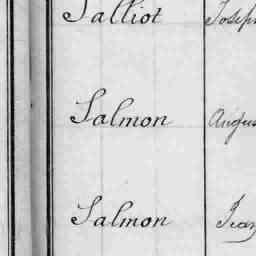 Salliot Joseph
Salmon
Salmon Jean